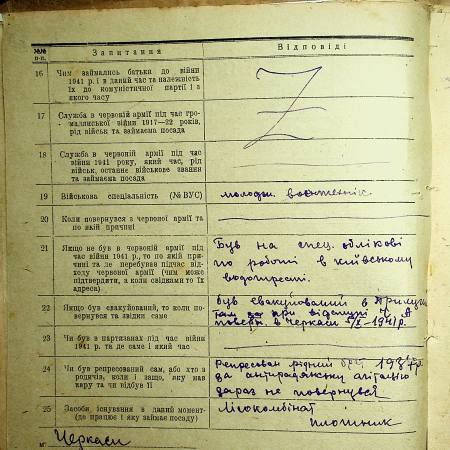 №№ п-п.
Запитання
Відповіді
16 Чим займались батьки до війни
1941 р. і в даний час та належність
їх до комуністичної партії і з
якого часу
17 Служба в червоній армії під час гро-
мадянської війни 1917—22 років,
рід військ та займаєма посада
18 Служба в червоній армії під час
війни 1941 року, який час, рід
військ, останнє військове звання
та займаєма посада
19 Військова спеціальність (№ ВУС)
молодш.
20 Коли повернувся з червоної армії та
по якій причині
21 Якщо не був в червоній армії під
час війни 1941 р., то по якій при-
чині та де перебував підчас від-
ходу червоної армії (чим може
підтвердити, а коли свідками то їх
адреса)
Був на спец. облікові
по роботі в Київському
водотресті.
22 Якщо був евакуйований, то коли по-
вернувся та звідки саме
був евакуйований в
там за при
поверн. в Черкаси 1941 р.
23 Чи був в партизанах під час війни
1941 та де саме і який час
24 Чи був репресований сам, або хто з
родичів, коли і защо, яку мав
кару та чи відбув її
Репресован рідний брат 1937 р.
за антирадянську агітацію
зараз не повернувся
25 Засоби існування в даний момент
(де працює і яку займає посаду)
Лісокомбінат
плотник
м. Черкаси